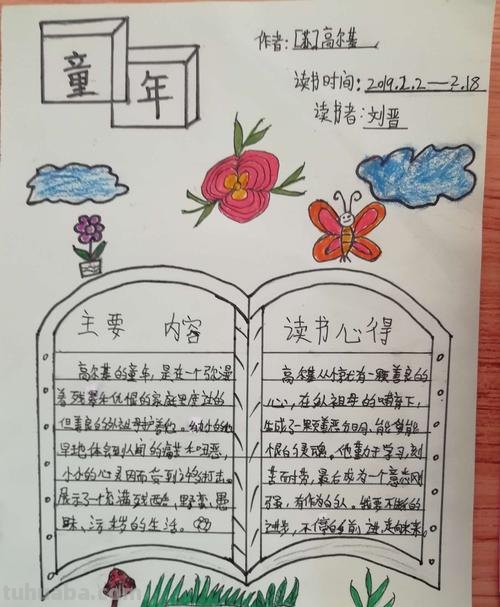 童年
作者:[苏]高尔基
读书时间:2019.2.2—2.18
读书者:刘晋
主要 内容
读书心得
高尔基的童年,是在一个弥漫
着残暴和仇恨的家庭里度过的
但善良的外祖母护着他。幼小的他
早地体会到人间的痛苦和丑恶,
小小的心灵因而受到的打击。
展示了一残酷,野蛮、愚
昧、污秽的生活。
高尔基从小有一颗善良的
心,在外祖母的下,
生成了一颗善恶分明、能
恨的灵魂。他勤于学习,刻
苦耐劳,最后成为一个意志刚
强,有作为的人。我要不断的
进步,不停的向前进走向未来。
tuhuaba.com